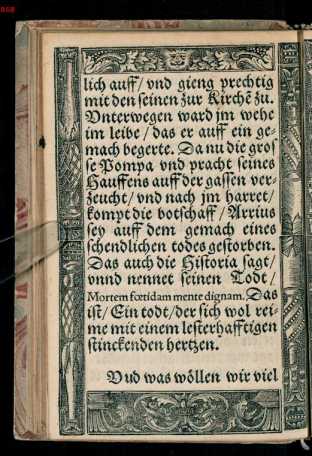 lich auff/ vnd gieng prechtig
mit den seinen zur Kirchē zu.
Vnterwegen ward jm wehe
im leibe/das er auff ein ge-
mach begerte. Da nu die gros
se Pompa vnd pracht seines
Hauffens auff der gassen ver-
zeucht/vnd nach jm harret/
kompt die botschafft/ Arrius
sey auff dem gemach eines
schendlichen todes gestorben.
Das auch die Historia sagt/
vnnd nennet seinen Todt/
Mortem fœtidam mente dignam. Das
ist/ Ein todt/der sich wol rei-
me mit einem lesterhafftigen
stinckenden hertzen.
Vnd was wöllen wir viel